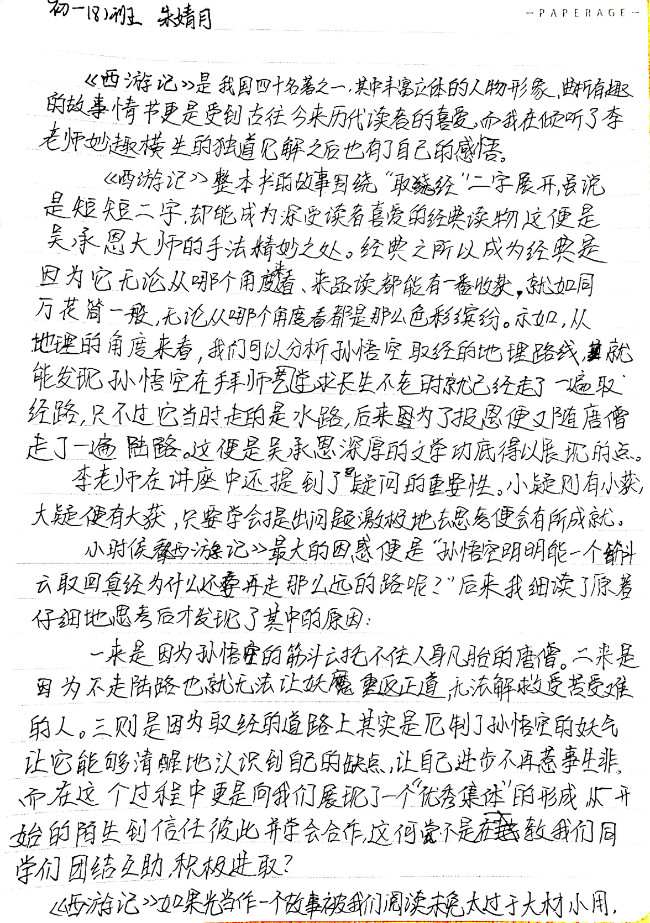 初一(8)班 朱婧月
PAPERAGE
《西游记》是我国四十名著之一.其中丰富立体的人物形象、曲折有趣
的故事情节更是受到古往今来历代读者的喜爱。而我在倾听了李
老师妙趣横生的独道见解之后也有了自己的感悟。
《西游记》整本书的故事围绕"取经"二字展开,虽说
是短短二字,却能成为深受读者喜爱的经典读物,这便是
吴承恩大师的手法精妙之处。经典之所以成为经典是
因为它无论从哪个角度来看、来品读都能有一番收获。就如同
万花筒一般,无论从哪个角度看都是那么色彩缤纷。示如,从
地理的角度来看,我们可以分析孙悟空取经的地理路线,就
能发现孙悟空在拜师学艺求长生不老时就已经走了一遍取
经路,只不过它当时走的是水路,后来因为了报恩便又随唐僧
走了一遍陆路。这便是吴承恩深厚的文学功底得以展现的点。
李老师在讲座中还提到了疑问的重要性。小疑则有小获,
大疑便有大获,只要学会提出问题激极地去思考便会有所成就。
小时侯看《西游记》最大的困惑便是"孙悟空明明能一个筋斗
云取回真经为什么还要再走那么远的路呢?"后来我细读了原著
仔细地思考后才发现了其中的原因:
一来是因为孙悟空的筋斗云托不住人身凡胎的唐僧。二来是
因为不走陆路也就无法让妖魔重返正道,无法解救受苦受难
的人。三则是因为取经的道路上其实是压制了孙悟空的妖气
让它能够清醒地认识到自己的缺点,让自己进步不再惹事生非.
而在这个过程中更是向我们展现了一个"优秀集体"的形成从开
始的陌生到信任彼此并学会合作,这何尝不是在教我们同
学们团结互助,积极进取?
《西游记》如果光当作一个故事被我们阅读未免太过于大材小用.